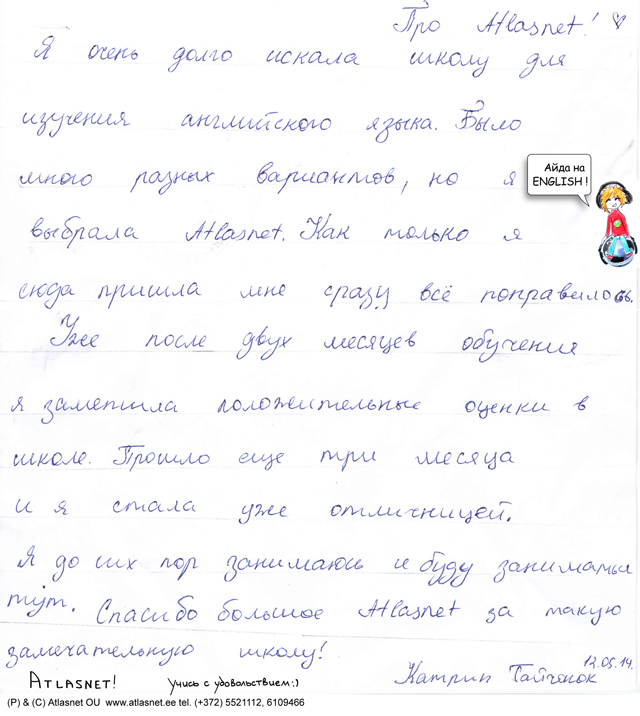 Про Atlasnet!
Я очень долго искала школу для
изучения английского языка. Было
много разных вариантов, но я
Айда на
ENGLISH!
выбрала Atlasnet. Как только я
сюда пришла мне сразу всё понравилось.
Уже после двух месяцев обучения
я заметила положительные оценки в
школе. Прошло еще три месяца
и я стала уже отличницей.
Я до сих пор занимаюсь и буду заниматься
тут. Спасибо большое Atlasnet за такую
замечательную школу!
12.05.14.
Катрин
ATLASNET! Учись с удовольствием:)
(P) & (C) Atlasnet OU www.atlasnet.ee tel. (+372) 5521112, 6109466